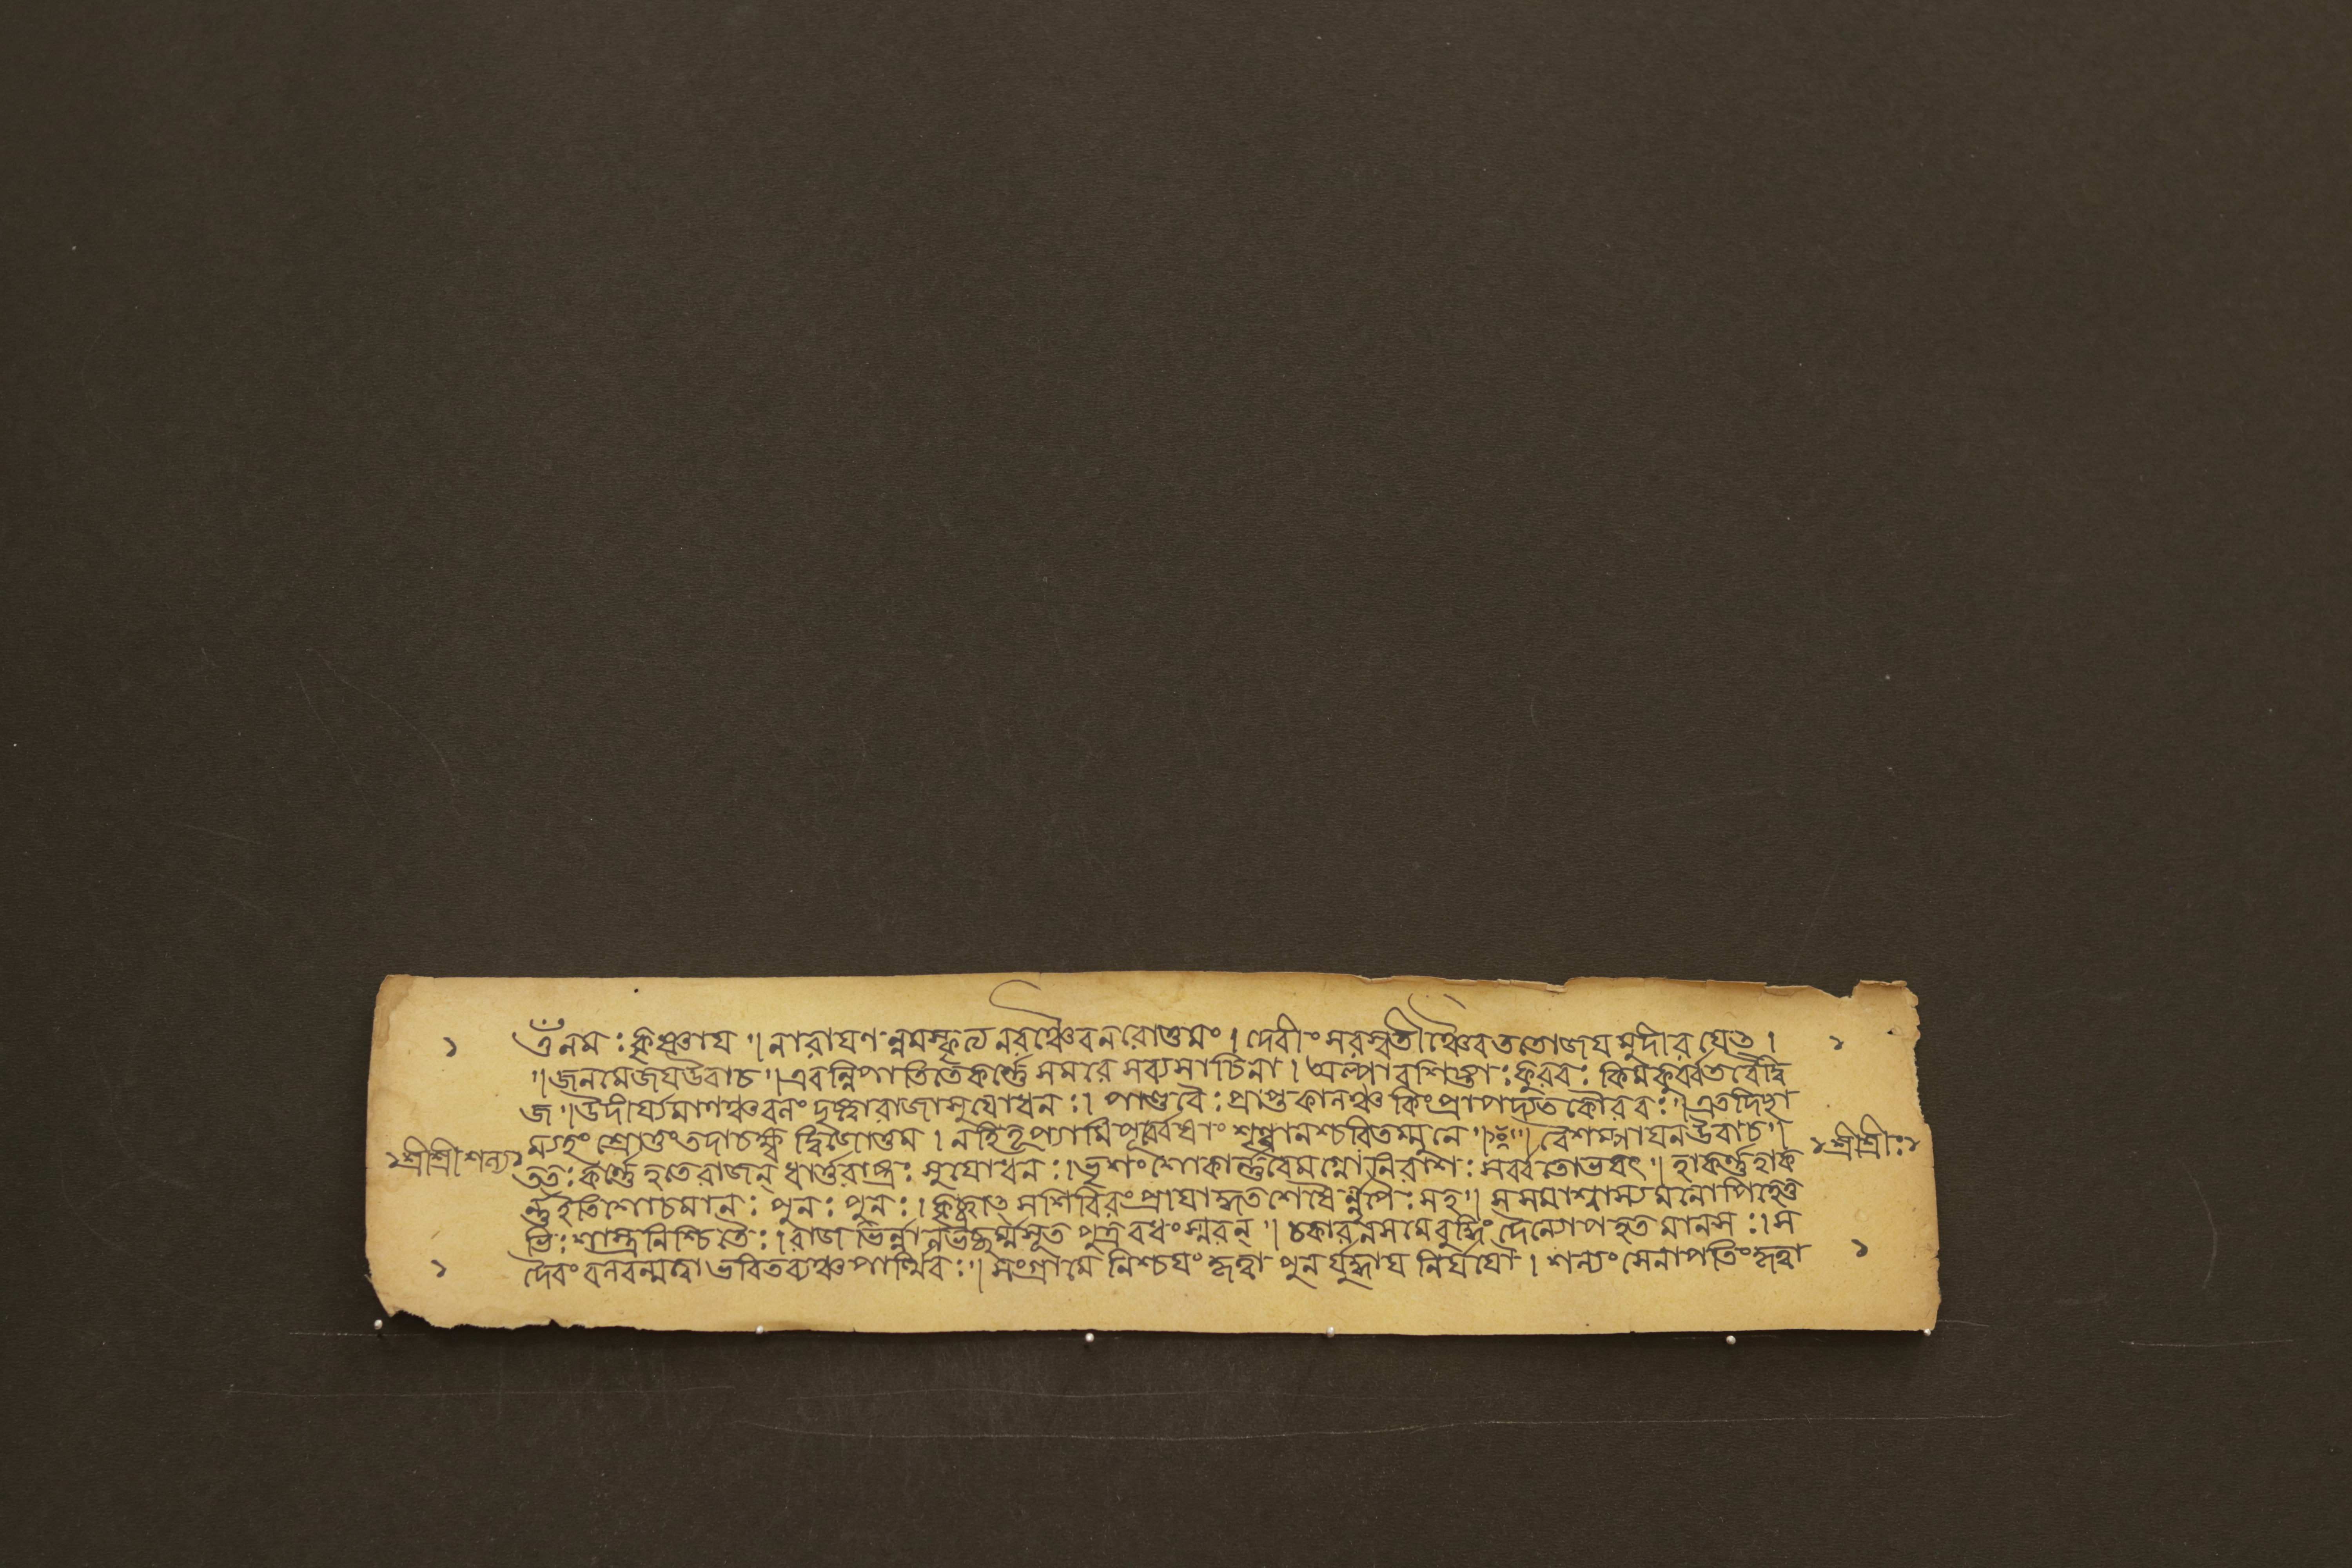 ১ ওঁ নমঃ কৃষ্ণায ॥ নারাযণন্নমস্কৃত্য নরঞ্চৈব নরোত্তমং । দেবীং সরস্বতীঞ্চৈব ততো জয মুদীরযেত । ১
॥ জনমেজয উবাচ ॥ এবন্নিপাতিতে কর্ণ্ণে সমরে সব্যসাচিনা । অল্পাবশিষ্টাঃ কুরবঃ কিমকুর্ব্বত বৈ দ্বি
জ ॥ উদীর্য্যমাণঞ্চ বলং দৃষ্ট্বা রাজা সুযোধনঃ । পাণ্ডবৈঃ প্রাপ্তকালঞ্চ কিং প্রাপদ্যত কৌরবঃ ॥ এতদিছা
ম্যহং শ্রোতুং তদাচক্ষ্ব দ্বিজোত্তম । নহি তৃপ্যামি পূর্ব্বেষাং শৃণ্বানশ্চরিতম্মুনে ॥ ০ ॥ বৈশম্পাযন উবাচ ॥
১ শ্রীশ্রীশল্য ১ ততঃ কর্ণ্ণে হতে রাজন্ ধার্ত্তরাষ্ট্রঃ সুযোধনঃ । ভৃশং শোকার্ণ্ণবে মগ্নো নিরাশঃ সর্ব্বতোভবৎ ॥ হা কর্ণ্ণ হা ক ১ শ্রীশ্রীঃ ১
র্ণ্ণ ইতি শোচমানঃ পুনঃ পুনঃ । কৃচ্ছ্রাৎ সশিবিরং প্রাযাদ্ধতশেষৈর্নৃপৈঃ সহ ॥ স সমাশ্বাস্যমনোপি হেতু
ভিঃ শাস্ত্রনিশ্চিতৈঃ । রাজভির্ন্নালভচ্ছর্ম্ম সূতপুত্রবধং স্মরন্ ॥ চকার ন সমে বুদ্ধিং দৈন্যোপহত মানসঃ । স
১ দৈবং বলবন্মত্বা ভবিতব্যঞ্চ পার্থিবঃ ॥ সংগ্রামে নিশ্চযং কৃত্বা পুনর্যুদ্ধায নির্যযৌ । শল্যং সেনাপতিং কৃত্বা ১